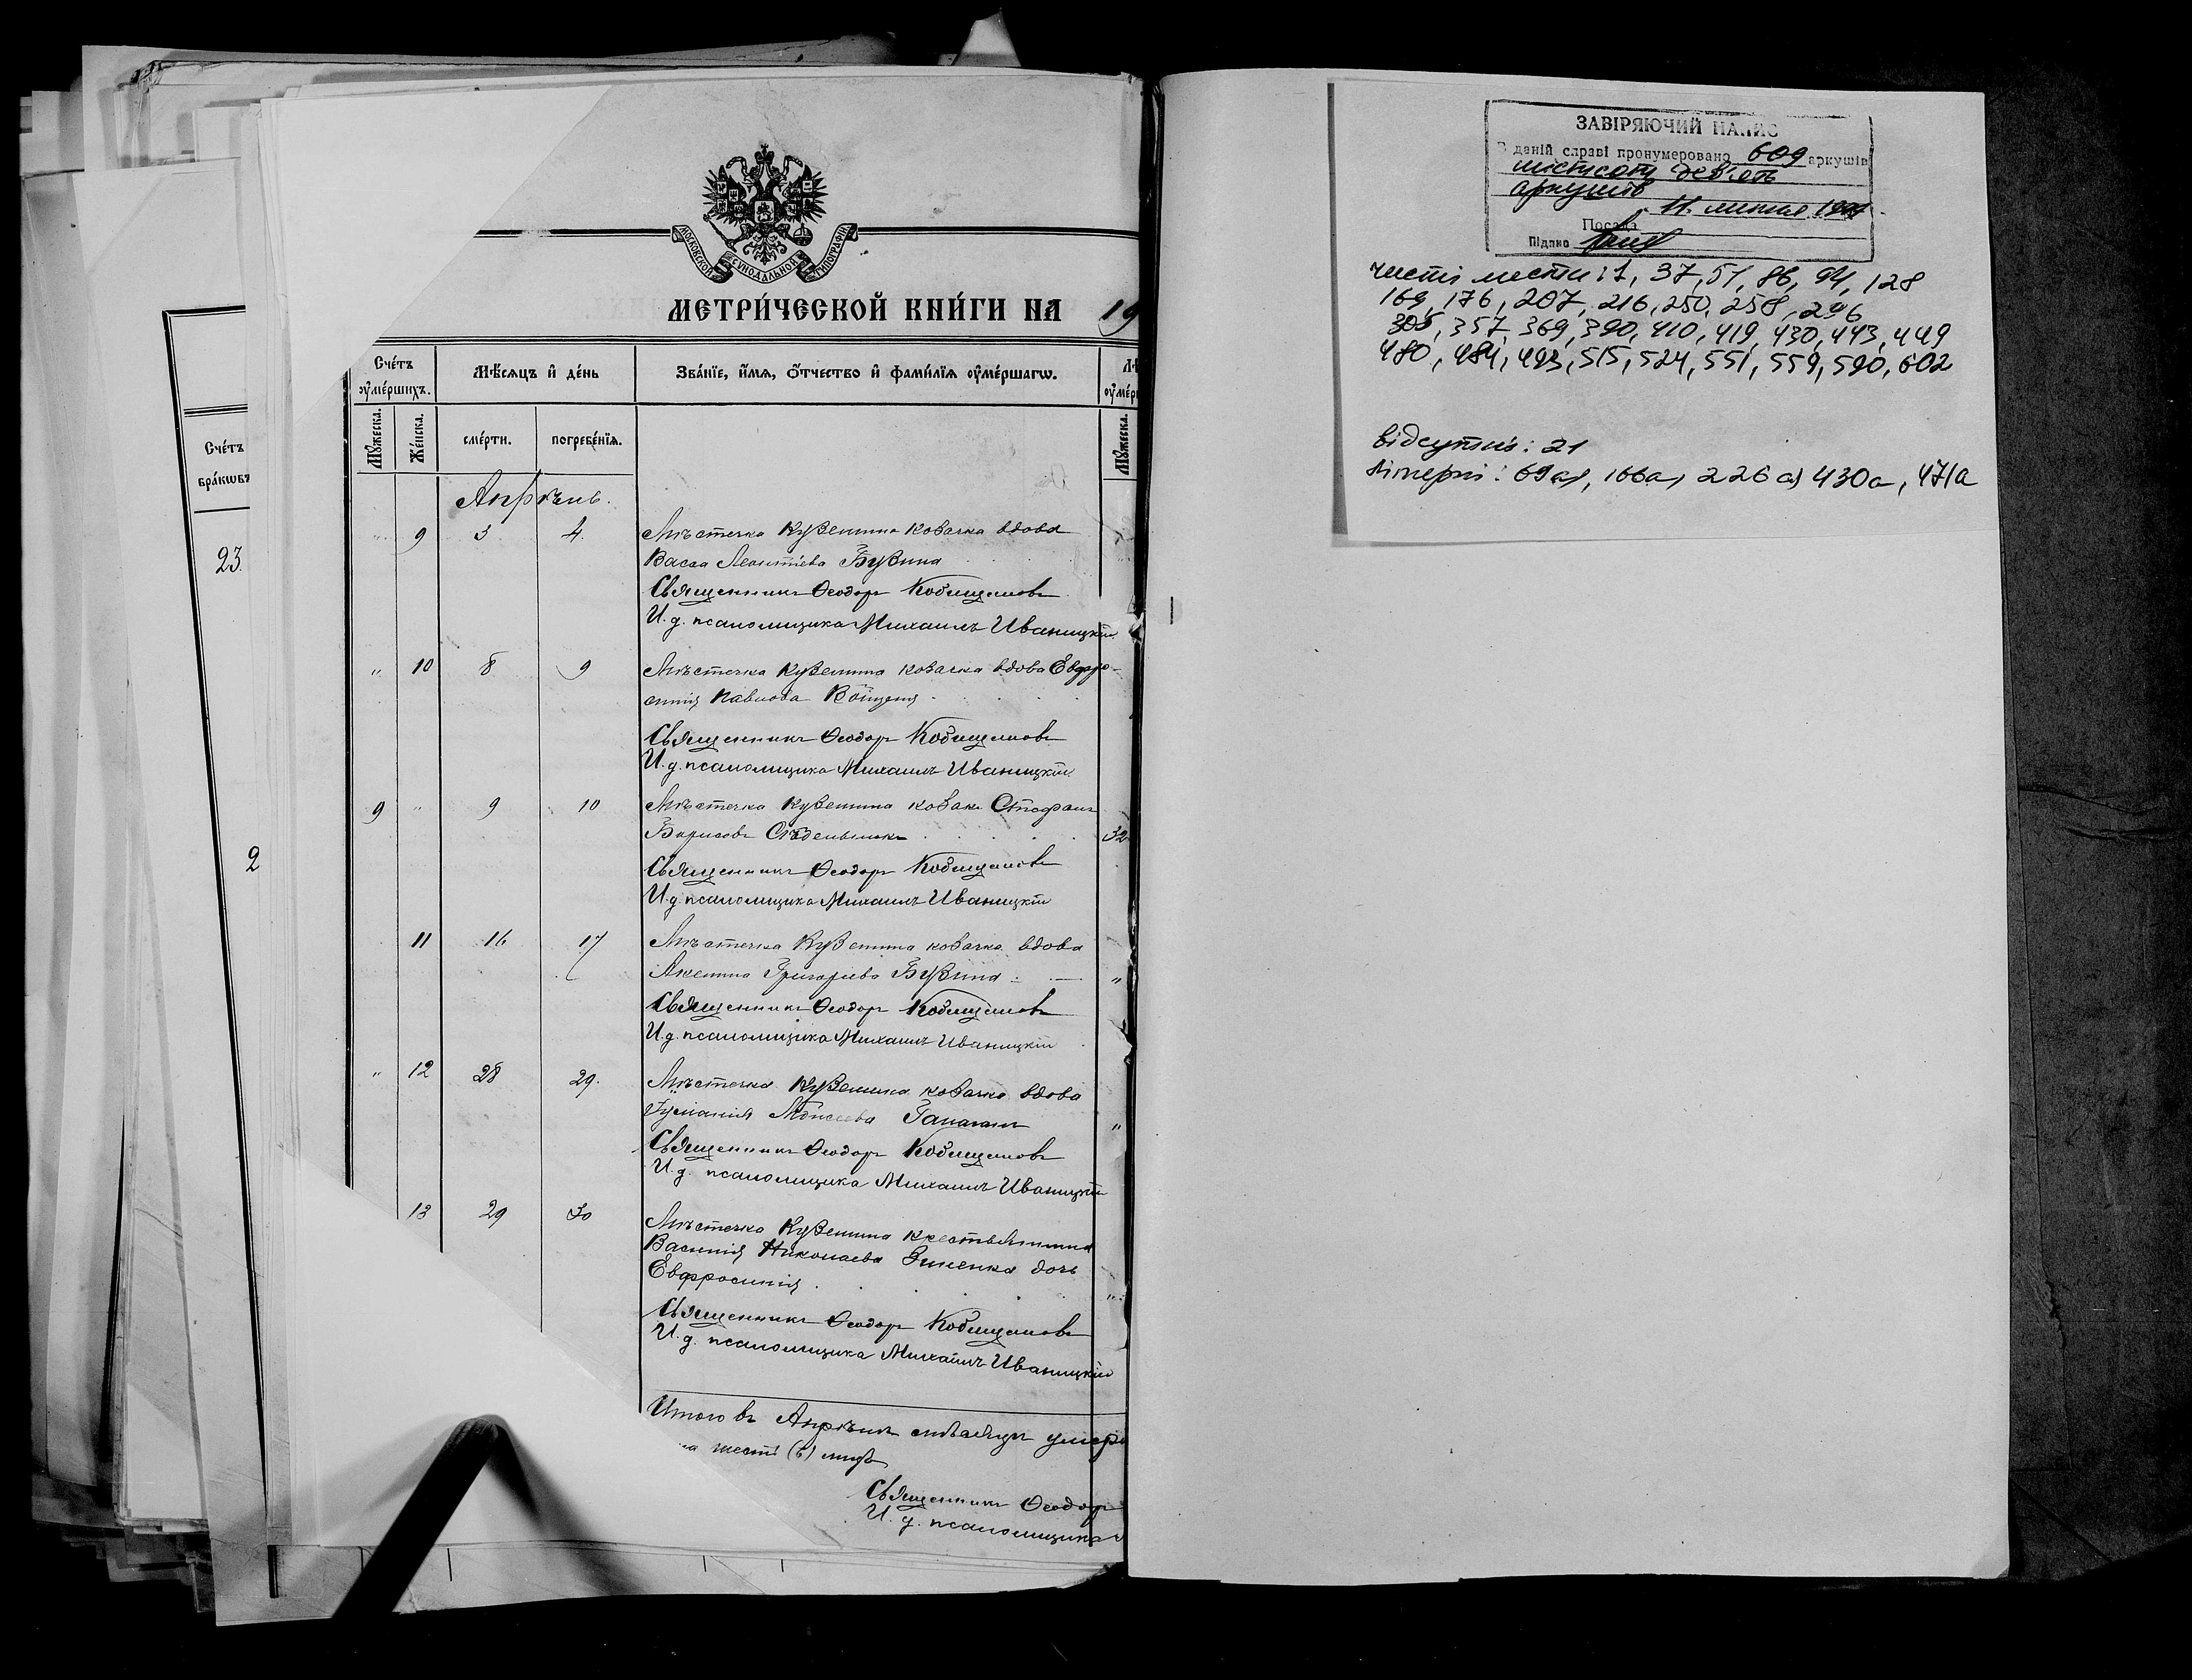 МОСКОВСКОЙ СѴНОДАЛЬНОЙ ТИПОГРАФІИ
МЕТРИ́ЧЕСКОЙ КНИ́ГИ НА 19
Сче́тъ оу҆ме́ршихъ.
Мѣ́сяцъ и҆ де́нь
Зва́нїе, и҆́мя, ѻ҆́тчество и҆ фами́лїя оу҆ме́ршагѡ.
Мꙋ́жеска.
Же́нска.
сме́рти.
погребе́нїя.
Мꙋ́жеска.
Сче́тъ
бра́кѡвъ
23.
2
Апрѣль.
" 9 3 4. Мѣстечка Куземина козачка вдова
Васса Леонтіева Бузина
Священникъ Ѳеодоръ Кобищановъ
И. д. псаломщика Михаилъ Иваницкій
" 10 8 9 Мѣстечка Куземина козачка вдова Евфро-
синія Павлова
Священникъ Ѳеодоръ Кобищановъ
И. д. псаломщика Михаилъ Иваницкій
9 " 9 10 Мѣстечка Куземина козакъ Стефанъ
Борисовъ 32
Священникъ Ѳеодоръ Кобищановъ
И. д. псаломщика Михаилъ Иваницкій
11 16 17 Мѣстечка Куземина козачка вдова
Акилина Григорьева Бузина "
Священникъ Ѳеодоръ Кобищановъ
И. д. псаломщика Михаилъ Иваницкій
" 12 28 29. Мѣстечка Куземина козачка вдова
Іуліанія Моисеева "
Священникъ Ѳеодоръ Кобищановъ
И. д. псаломщика Михаилъ Иваницкій
13 29 30 Мѣстечка Куземина крестьянина
Василія Николаева Зиненка дочь
Евфросинія "
Священникъ Ѳеодоръ Кобищановъ
И. д. псаломщика Михаилъ Иваницкій
Итого въ Апрѣлѣ мѣсяцѣ умер
шесть (6) лицъ
Священникъ Ѳеодоръ
И. д. псаломщика
ЗАВІРЯЮЧИЙ НАПИС
В даній справі пронумеровано 609 аркушів
шістсот дев'ять
аркушів
11. липня
Посада
Підпис
чисті листи: 1, 37, 51, 86, 94, 128
169, 176, 207, 216, 250, 258, 296
305, 357, 369, 390, 410, 419, 430, 443, 449
480, 484, 493, 515, 524, 551, 559, 590, 602
відсутній: 21
літерні: 69а, 166а, 226а, 430а, 471а